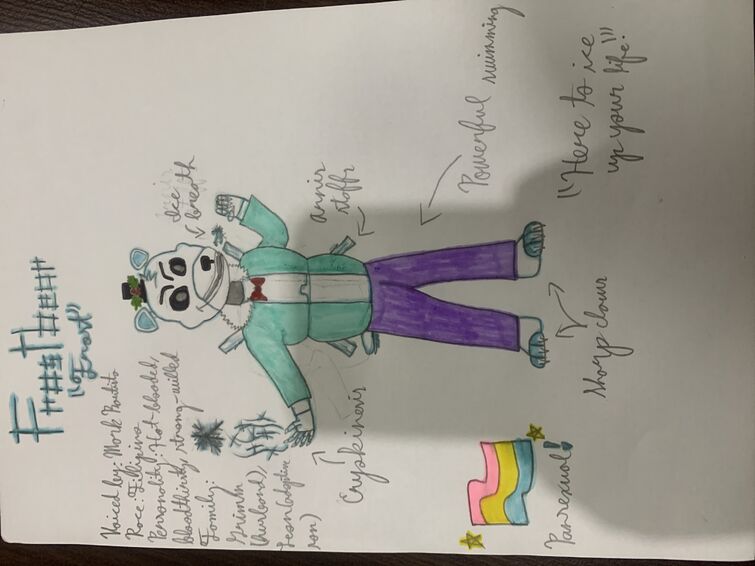 "Frost"
Voiced by: Mark
Race: Fillipino
Personality: Hot-blooded,
bloodthirsty, strong-willed
Family:
Grimm
(husband),
Lean (adoptive
son)
Ice
breath
annir
staffs
Cryokinesis
Powerful swimming
Sharp claws
"Here to ice
up your life!"
Pansexual!